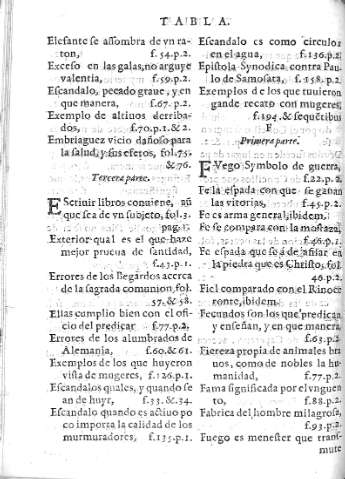 TABLA.
Elefante se assombra de vn ra-
ton, f.54.p.2.
Exceso en las galas, no arguye
valentia, f.59.p.2.
Escandalo, pecado graue, y en
que manera, f.67. p.2.
Exemplo de altinos derriba-
dos, f.70.p.1.&2.
Embriaguez vicio dañoso para
la salud, y sus efetos, fol.75.
&76.
Tercera parte.
Escriuir libros conuiene, aũ
que sea de vn subjeto, fol.3.
pag.1.
Exterior qual es el que haze
mejor prueua de santidad,
f.43.p.1.
Errores de los Begardos acerca
de la sagrada comunion, fol.
57.&58.
Elias cumplio bien con el ofi-
cio del predicar f.77.p.2.
Errores de los alumbrados de
Alemania, f.60.&61.
Exemplos de los que huyeron
vista de mugeres, f.126.p.1.
Escandalos quales, y quando se
an de huyr, f.33.&34.
Escandalo quando es actiuo po
co importa la calidad de los
murmuradores, f.135.p.1.
Escandalo es como circulos
en el agua, f.136.p.2.
Epistola Synodica contra Pau-
lo de Samosata, f.158.p.2.
Exemplos de los que tuuieron
gande recato con mugeres,
f.194.& sequẽtibus
F
Primera parte.
FVego Symbolo de guerra,
f.22.p.2.
Fe la espada con que se ganan
las vitorias, f.45.p.2.
Fe es arma general, ibidem.
Fe se compara con la mostaza,
f.46.p.1.
Fe espada que se a de afilar en
la piedra que es Christo, fol.
46.p.2.
Fiel comparado con el Rinoce
ronte, ibidem.
Fecundos son los que predican
y enseñan, y en que manera,
f.63.p.2.
Fiereza propia de animales bru
nos, como de nobles la hu-
manidad, f.77.p.2.
Fama significada por el vnguen
to, f.88.p.2.
Fabrica del hombre milagrosa,
f.93.p.2.
Fuego es menester que trans-
mute